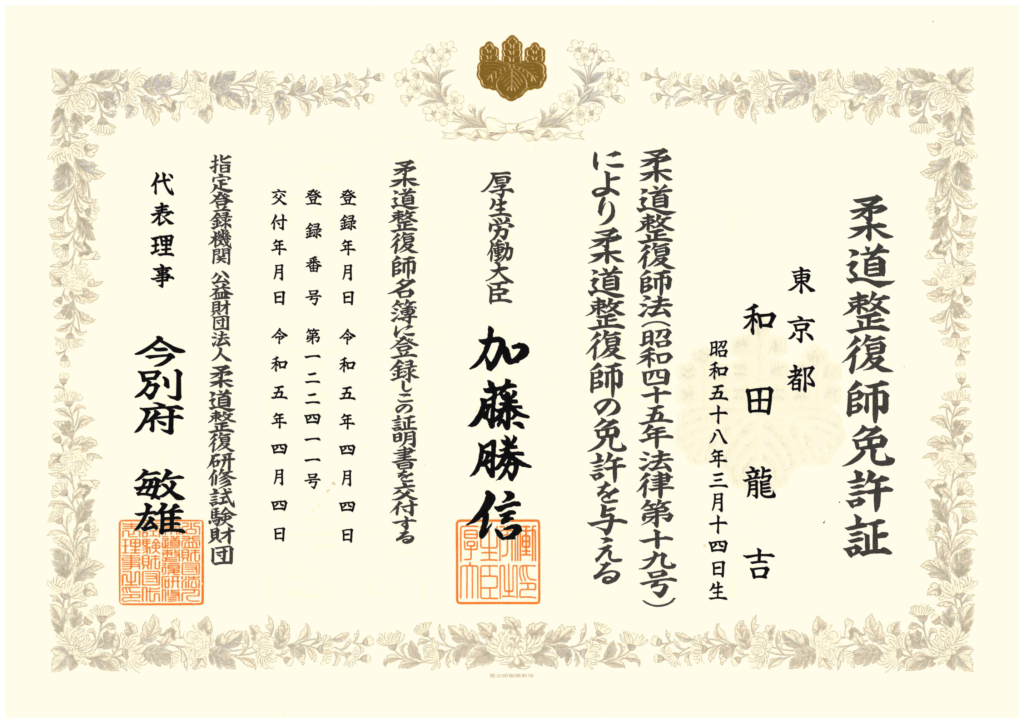 柔道整復師免許証
東京都
和田龍吉
昭和五十八年三月十四日生
柔道整復師法（昭和四十五年法律第十九号）
により柔道整復師の免許を与える
厚生労働大臣　加藤勝信
柔道整復師名簿に登録しこの証明書を交付する
登録年月日　令和五年四月四日
登録番号　第一二二四一一号
交付年月日　令和五年四月四日
指定登録機関　公益財団法人柔道整復研修試験財団
代表理事　今別府　敏雄